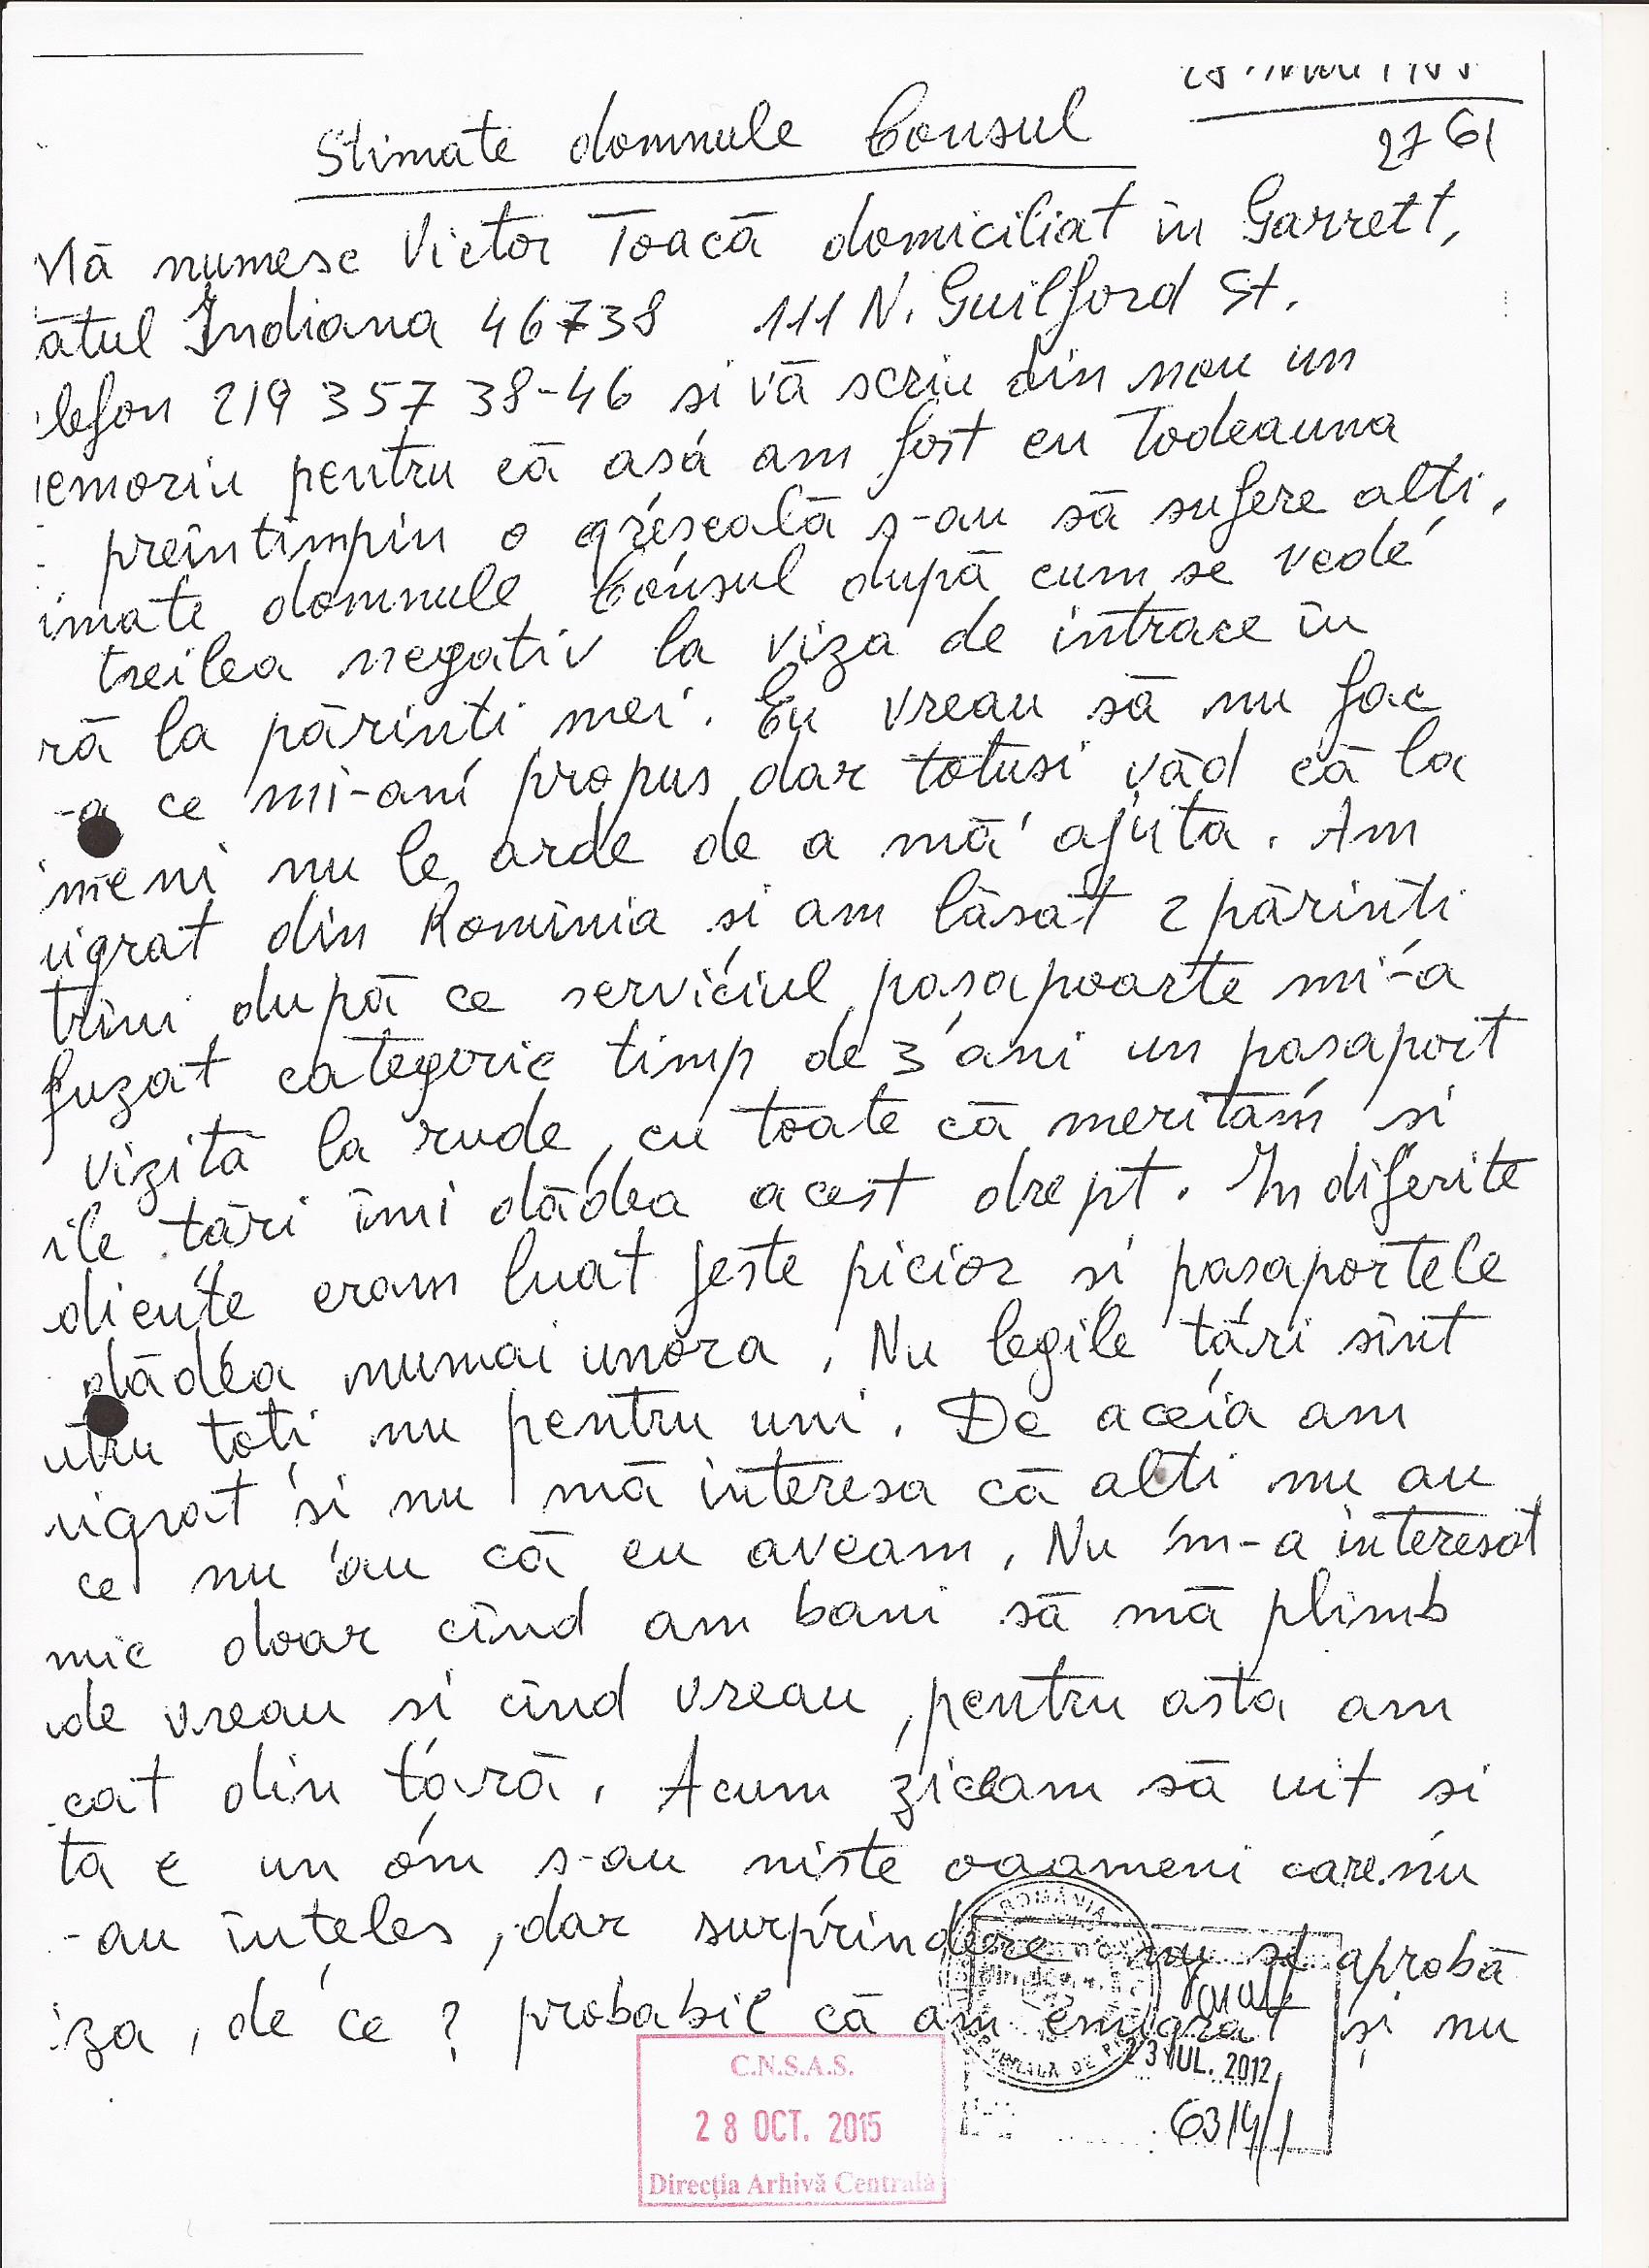 2761
Stimate domnule Consul
Mă numesc Victor Toacă domiciliat in Garrett,
atul Indiana 46738 111 N. Guilford St.
lefon 219 357 38-46 si vă scriu din nou un
emoriu pentru că asá am fost eu Todeauna
preîntimpin o greseală s-au să sufere alti.
imate domnule Consul după cum se vede
treilea negativ la viza de intrare în
ră la părinti mei. Eu vreau să nu fac
-a ce mi-am propus dar totusi văd că la
meni nu le arde de a mă ajuta. Am
igrat din Rominia si am lăsat 2 părinti
trîni după ce serviciul pasapoarte mi-a
fuzat categoric timp de 3 ani un pasaport
vizită la rude, cu toate că meritam si
ile tări îmi dădea acest drept. In diferite
diente eram luat peste picior si pasaportele
dădea numai unora. Nu legile tări sînt
ntru toti nu pentru uni. De aceia am
igrat si nu mă interesa că alti nu au
ce nu au că eu aveam. Nu m-a interesat
mic doar cînd am bani să mă plimb
de vreau si cînd vreau, pentru asta am
cat din tară. Acum ziceam să uit si
ta e un om s-au niste oaameni care nu
-au înteles, dar surprindere nu se aprobă
iza, de ce ? probabil că am emigrat și nu
ROMÂNIA
23 IUL. 2012
6314/1
C.N.S.A.S.
28 OCT. 2015
Direcția Arhivă Centrală